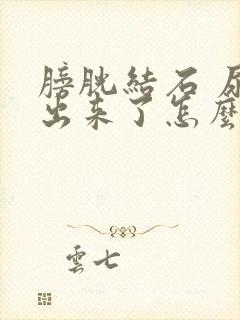 膀胱結石
出來了怎麼
雲七